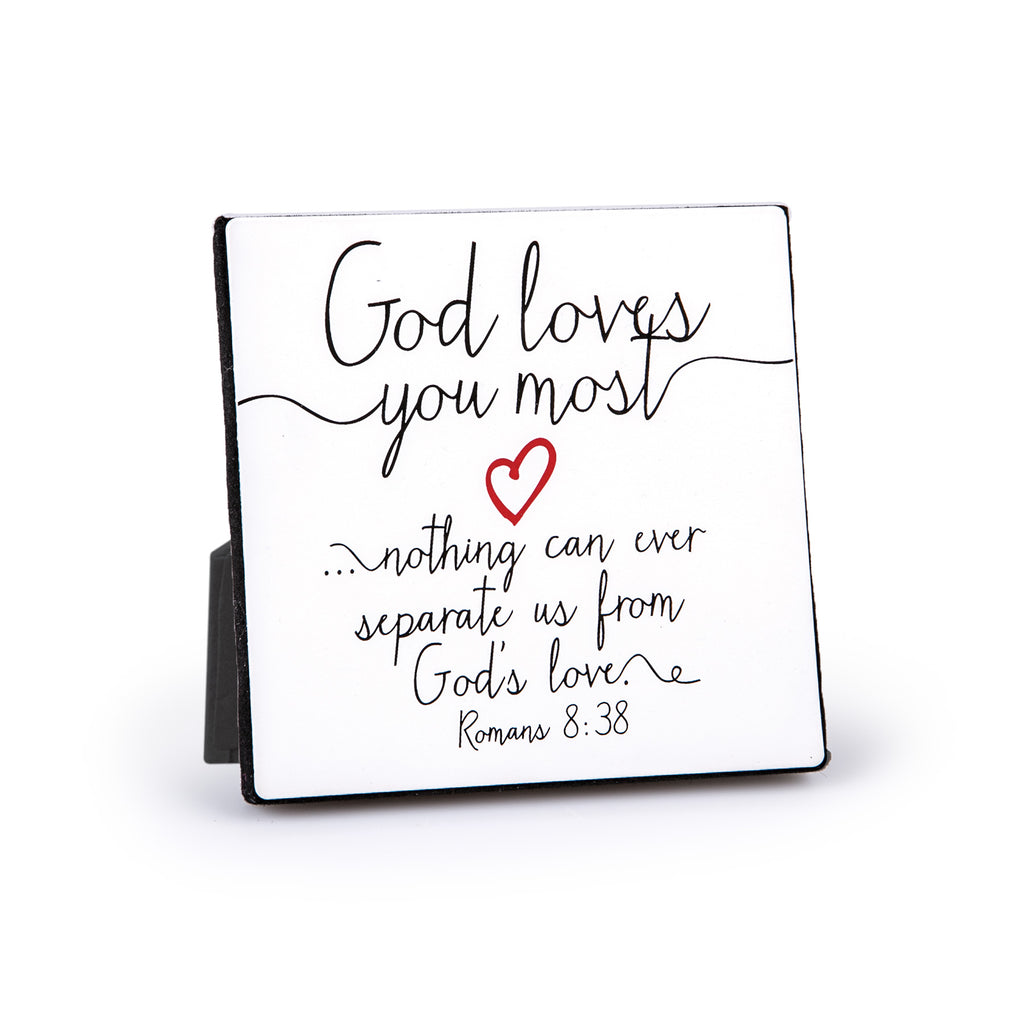 God loves
you most
...nothing can ever
separate us from
God's love.
Romans 8:38